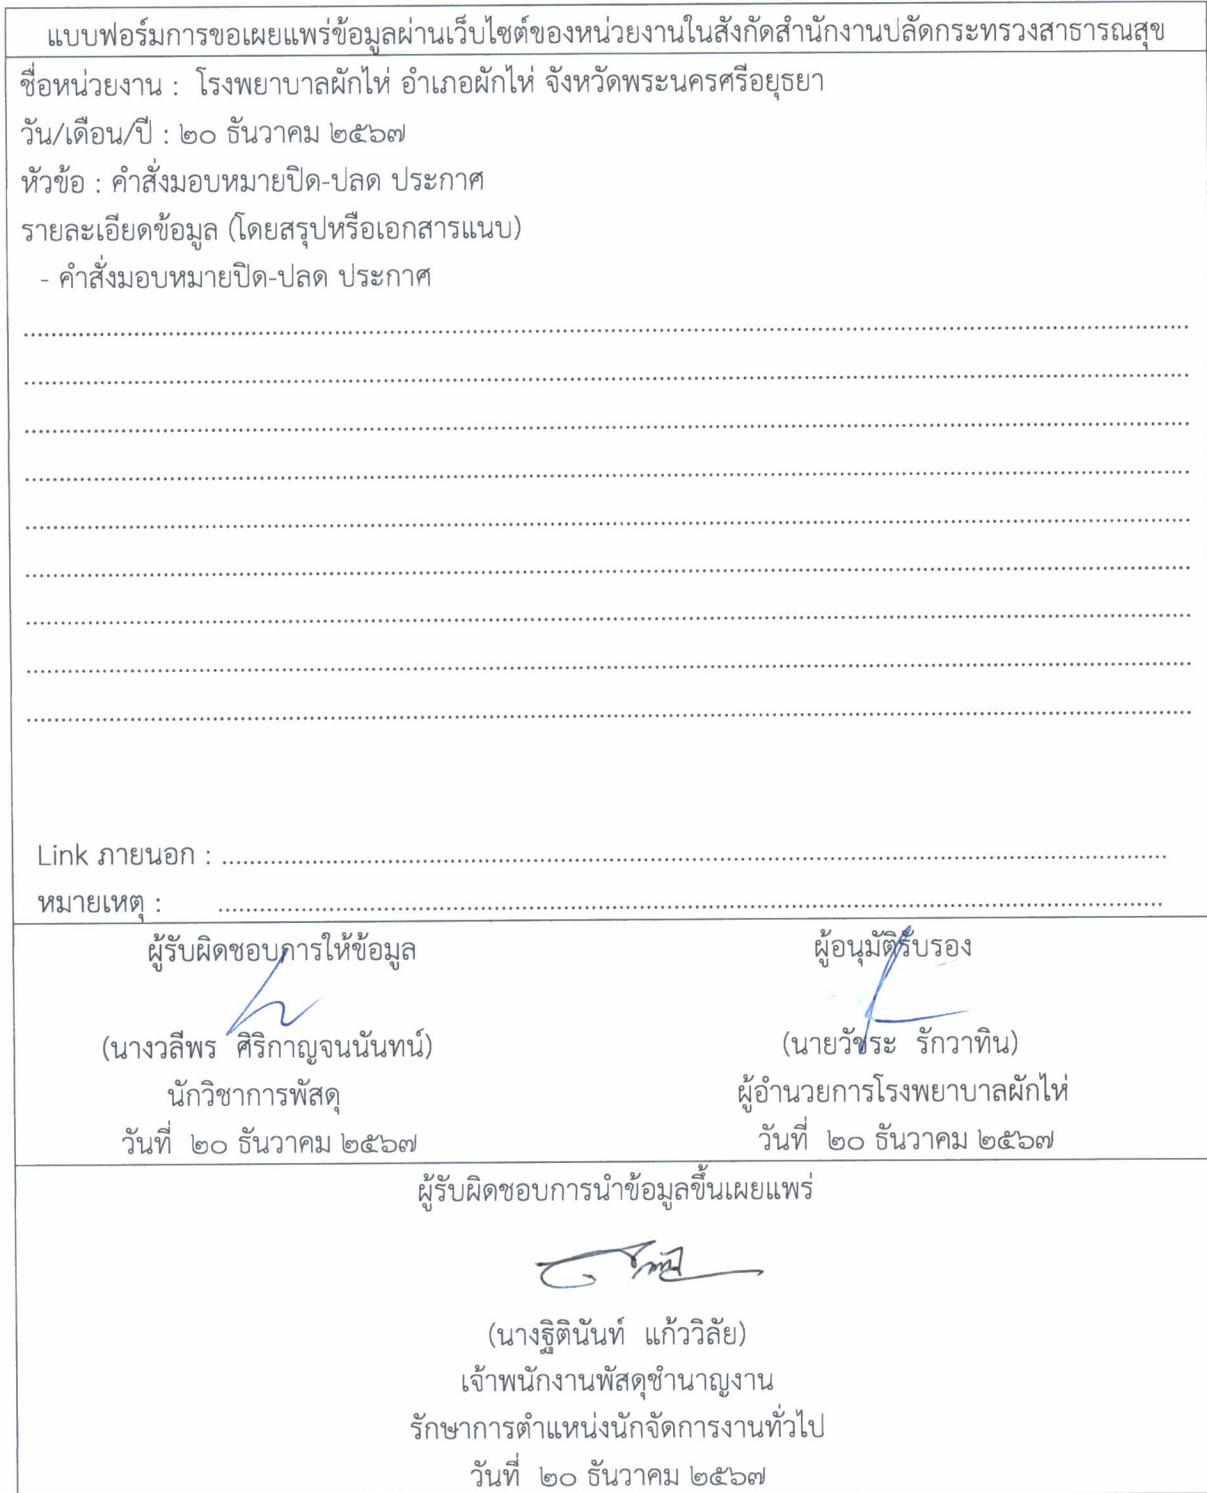 แบบฟอร์มการขอเผยแพร่ข้อมูลผ่านเว็บไซต์ของหน่วยงานในสังกัดสำนักงานปลัดกระทรวงสาธารณสุข
ชื่อหน่วยงาน : โรงพยาบาลผักไห่ อำเภอผักไห่ จังหวัดพระนครศรีอยุธยา
วัน/เดือน/ปี : ๒๐ ธันวาคม ๒๕๖๗
หัวข้อ : คำสั่งมอบหมายปิด-ปลด ประกาศ
รายละเอียดข้อมูล (โดยสรุปหรือเอกสารแนบ)
- คำสั่งมอบหมายปิด-ปลด ประกาศ
Link ภายนอก :
หมายเหตุ :
ผู้รับผิดชอบการให้ข้อมูล
(นางวลีพร ศิริกาญจนนันทน์)
นักวิชาการพัสดุ
วันที่ ๒๐ ธันวาคม ๒๕๖๗
ผู้อนุมัติรับรอง
(นายวัชระ รักวาทิน)
ผู้อำนวยการโรงพยาบาลผักไห่
วันที่ ๒๐ ธันวาคม ๒๕๖๗
ผู้รับผิดชอบการนำข้อมูลขึ้นเผยแพร่
(นางฐิตินันท์ แก้ววิลัย)
เจ้าพนักงานพัสดุชำนาญงาน
รักษาการตำแหน่งนักจัดการงานทั่วไป
วันที่ ๒๐ ธันวาคม ๒๕๖๗